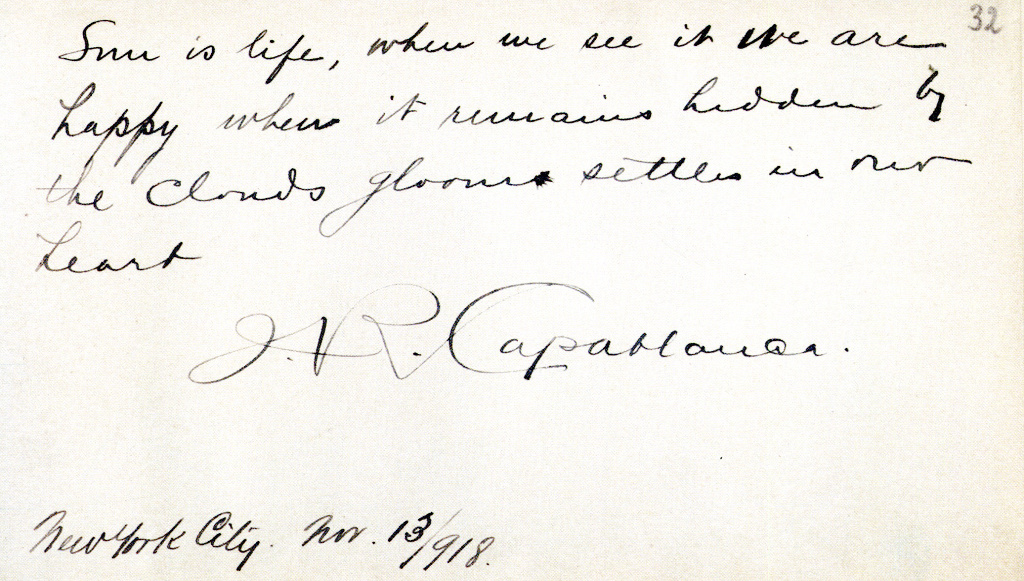 32
Sun is life, when we see it we are
happy when it remains hidden by
the clouds gloom settles in our
heart
J. R. Capablanca.
New York City. Nov. 13/918.